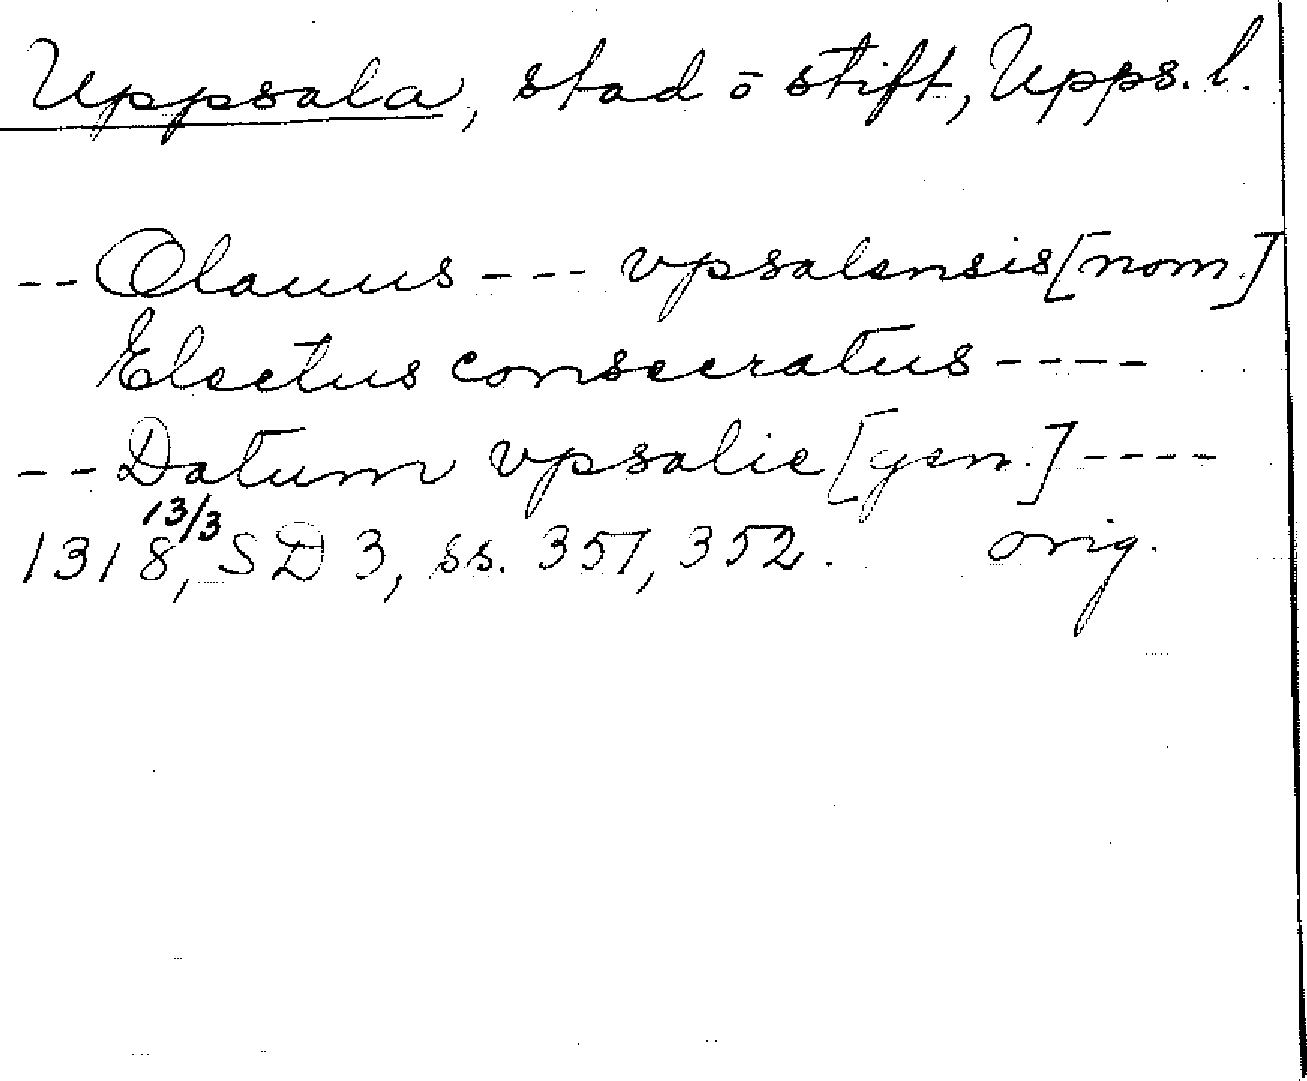 Uppsala, stad o stift, Upps. l.
-- Olauus --- vpsalensis [nom.]
Electus consecratus ----
-- Datum vpsalie [gen.] ----
1318 13/3, SD 3, ss. 351, 352. orig.